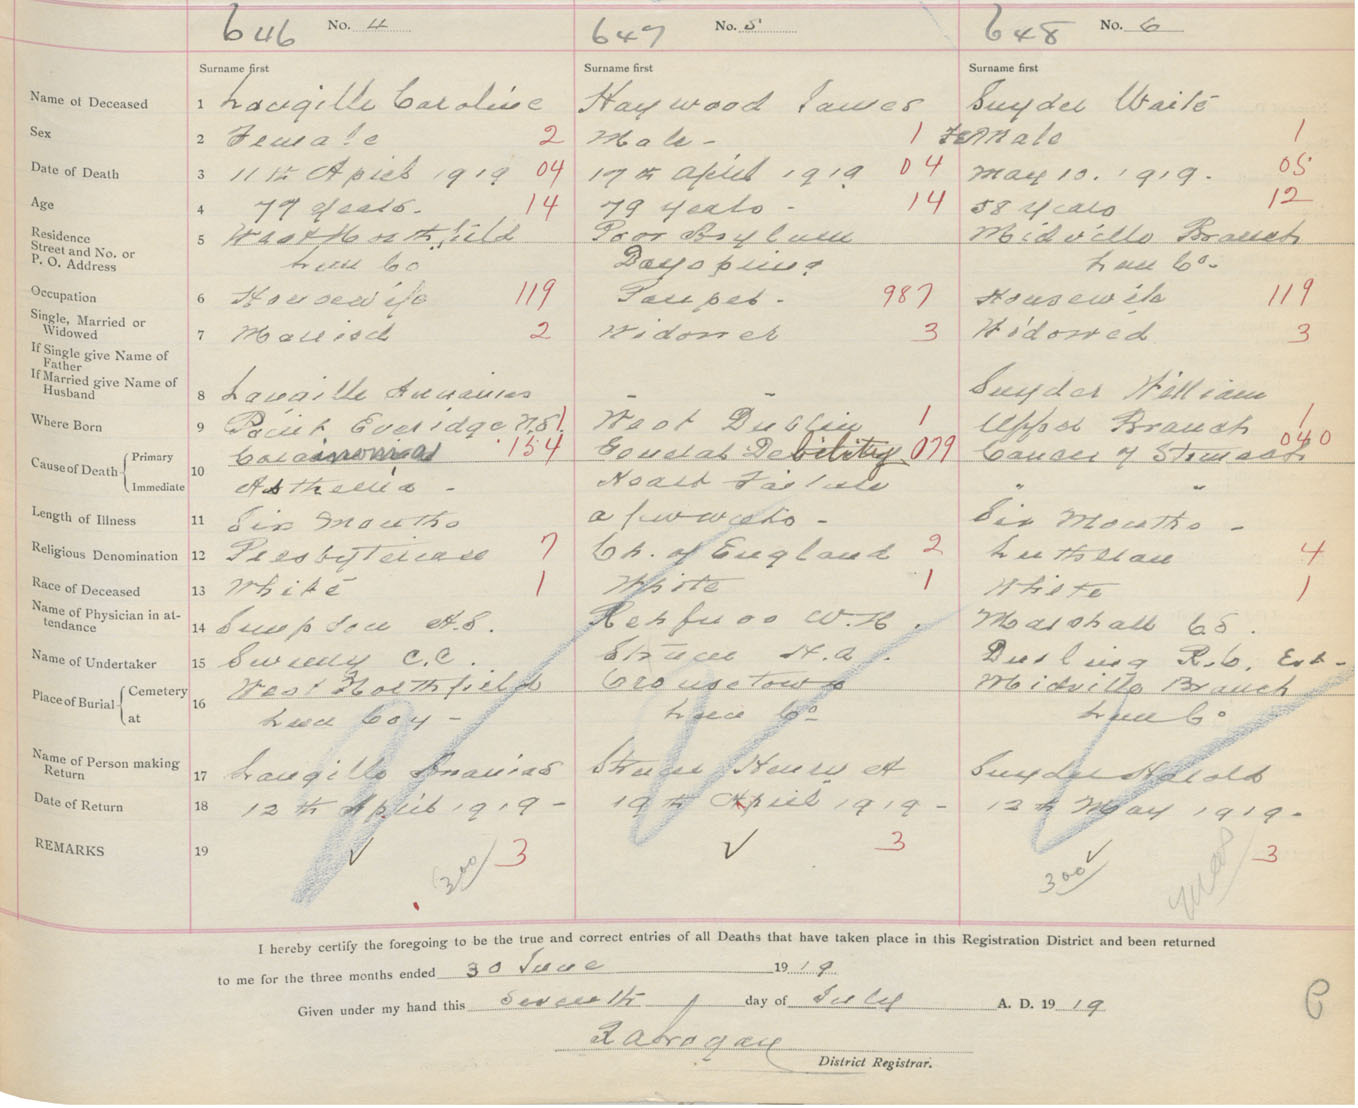 646 No. 4 647 No. 5 648 No. 6
Surname first Surname first Surname first
Name of Deceased 1 Langille Caroline Haywood James Snyder Waite
Sex 2 Female 2 Male - 1 Female 1
Date of Death 3 11th April 1919 04 17th April 1919 04 May 10. 1919. 05
Age 4 77 years. 14 79 years - 14 58 years 12
Residence
Street and No. or
P. O. Address
5 West Northfield Poor Asylum Midville Branch
Lun Co Lun Co.
Occupation 6 Housewife 119 Pauper - 987 Housewife 119
Single, Married or
Widowed
7 Married 2 Widower 3 Widowed 3
If Single give Name of
Father
If Married give Name of
Husband
8 Langille Ananias - - Snyder William
Where Born 9 Point N.S. 1 West Dublin 1 Upper Branch 1
Cause of Death { Primary 10 Carcinoma 154 General Debility 079 Cancer of Stomach 040
Immediate Asthenia - Heart Failure " "
Length of Illness 11 Six Months a few weeks - Six Months -
Religious Denomination 12 Presbyterian 7 Ch. of England 2 Lutheran 4
Race of Deceased 13 White 1 White 1 White 1
Name of Physician in at-
tendance
14 Simpson H.S. Rehfuss W.N. Marshall C S.
Name of Undertaker 15 Sweeny C.C. Strum H.A. Darling R.C. Est-
Place of Burial { Cemetery 16 West Northfield Crousetown Midville Branch
at Lun Coy - Lun Co Lun Co
Name of Person making
Return
17 Langille Ananias Strum Henry A Snyder Harold
Date of Return 18 12th April 1919 - 19th April 1919 - 12th May 1919 -
REMARKS 19 ✓ 300 3 ✓ 3 300 ✓ 3
I hereby certify the foregoing to be the true and correct entries of all Deaths that have taken place in this Registration District and been returned
to me for the three months ended 30 June 1919
Given under my hand this Seventh day of July A. D. 1919
District Registrar.